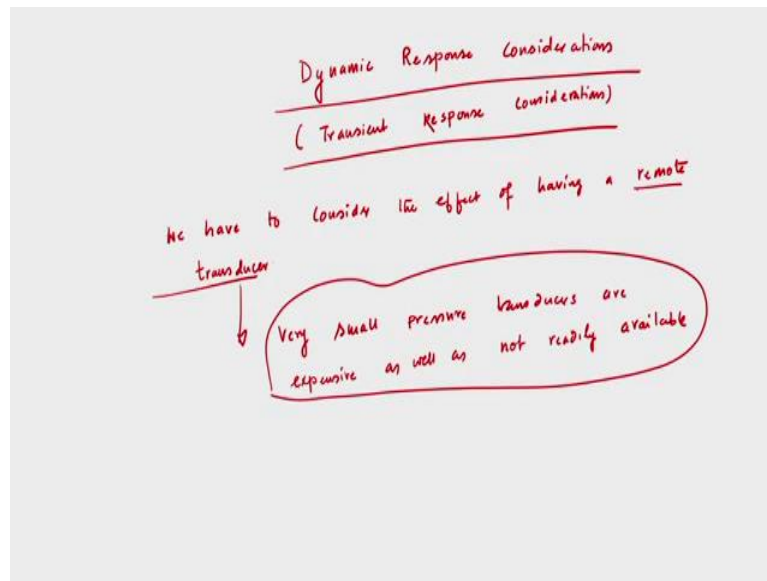 Dynamic Response Considerations
( Transient Response Considerations)
We have to consider the effect of having a remote
transducer
Very small pressure transducers are
expensive as well as not readily available